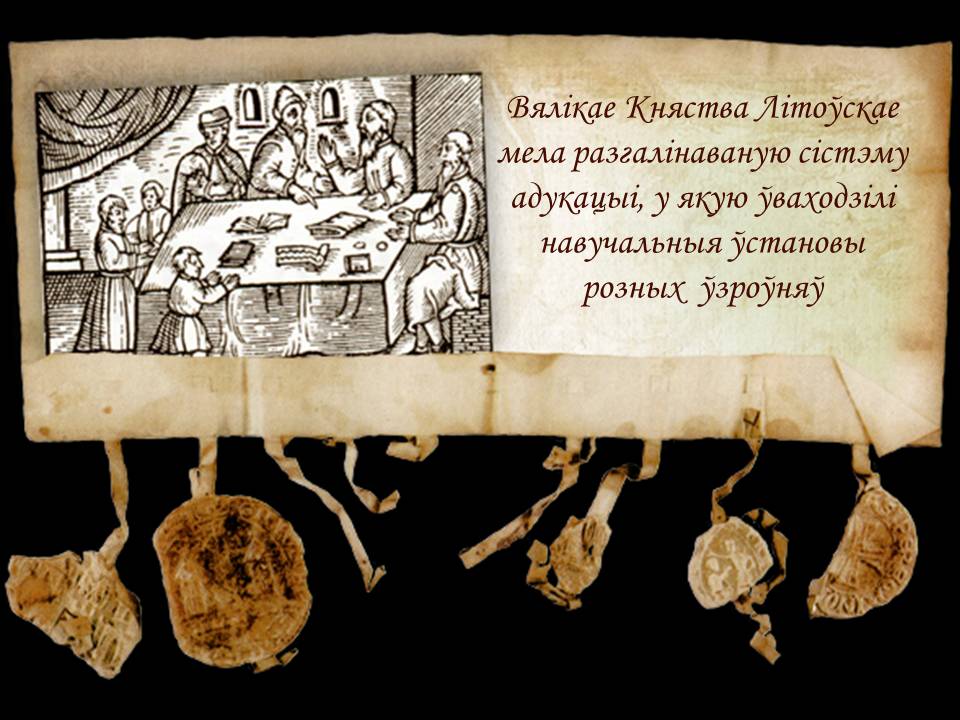 Вялікае Княства Літоўскае
мела разгалінаваную сістэму
адукацыі, у якую ўваходзілі
навучальныя ўстановы
розных ўзроўняў